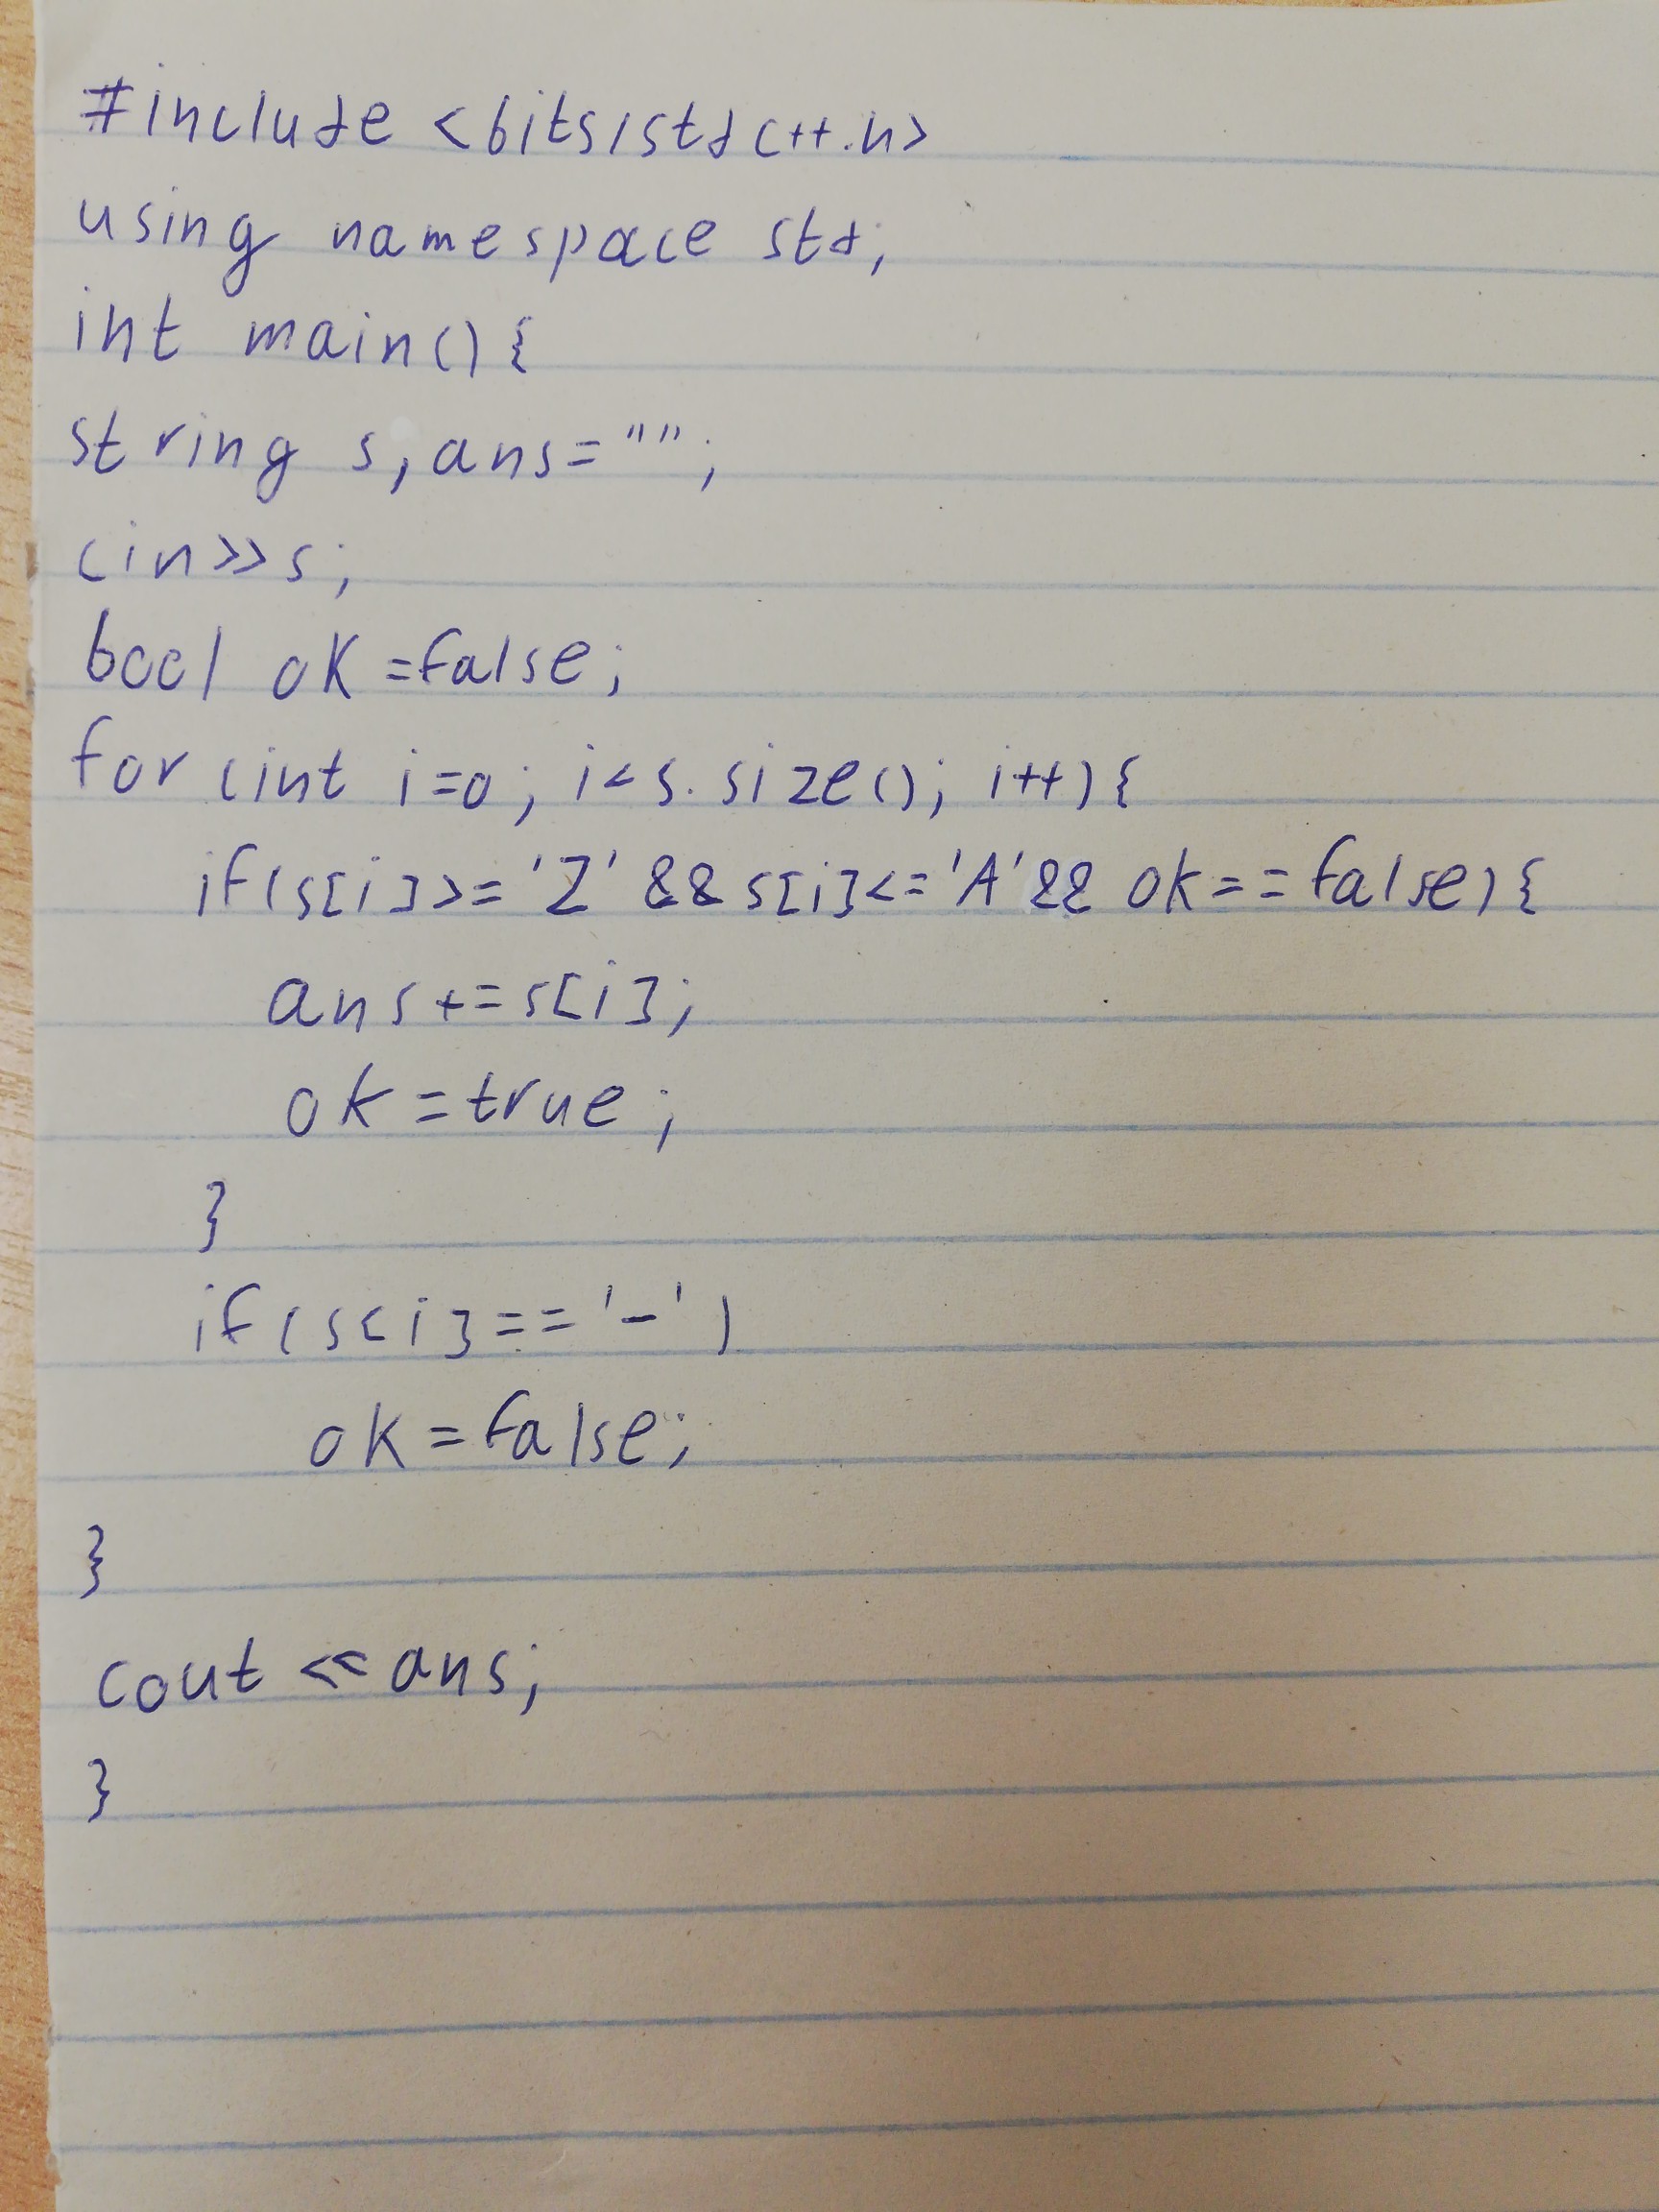 #include <bits/stdc++.h>
using namespace std;
int main(){
string s,ans="";
cin>>s;
bool ok=false;
for (int i=0; i<s.size(); i++){
if(s[i]>='Z' && s[i]<='A' && ok==false){
ans+=s[i];
ok=true;
}
if(s[i]=='-')
ok=false;
}
cout<<ans;
}